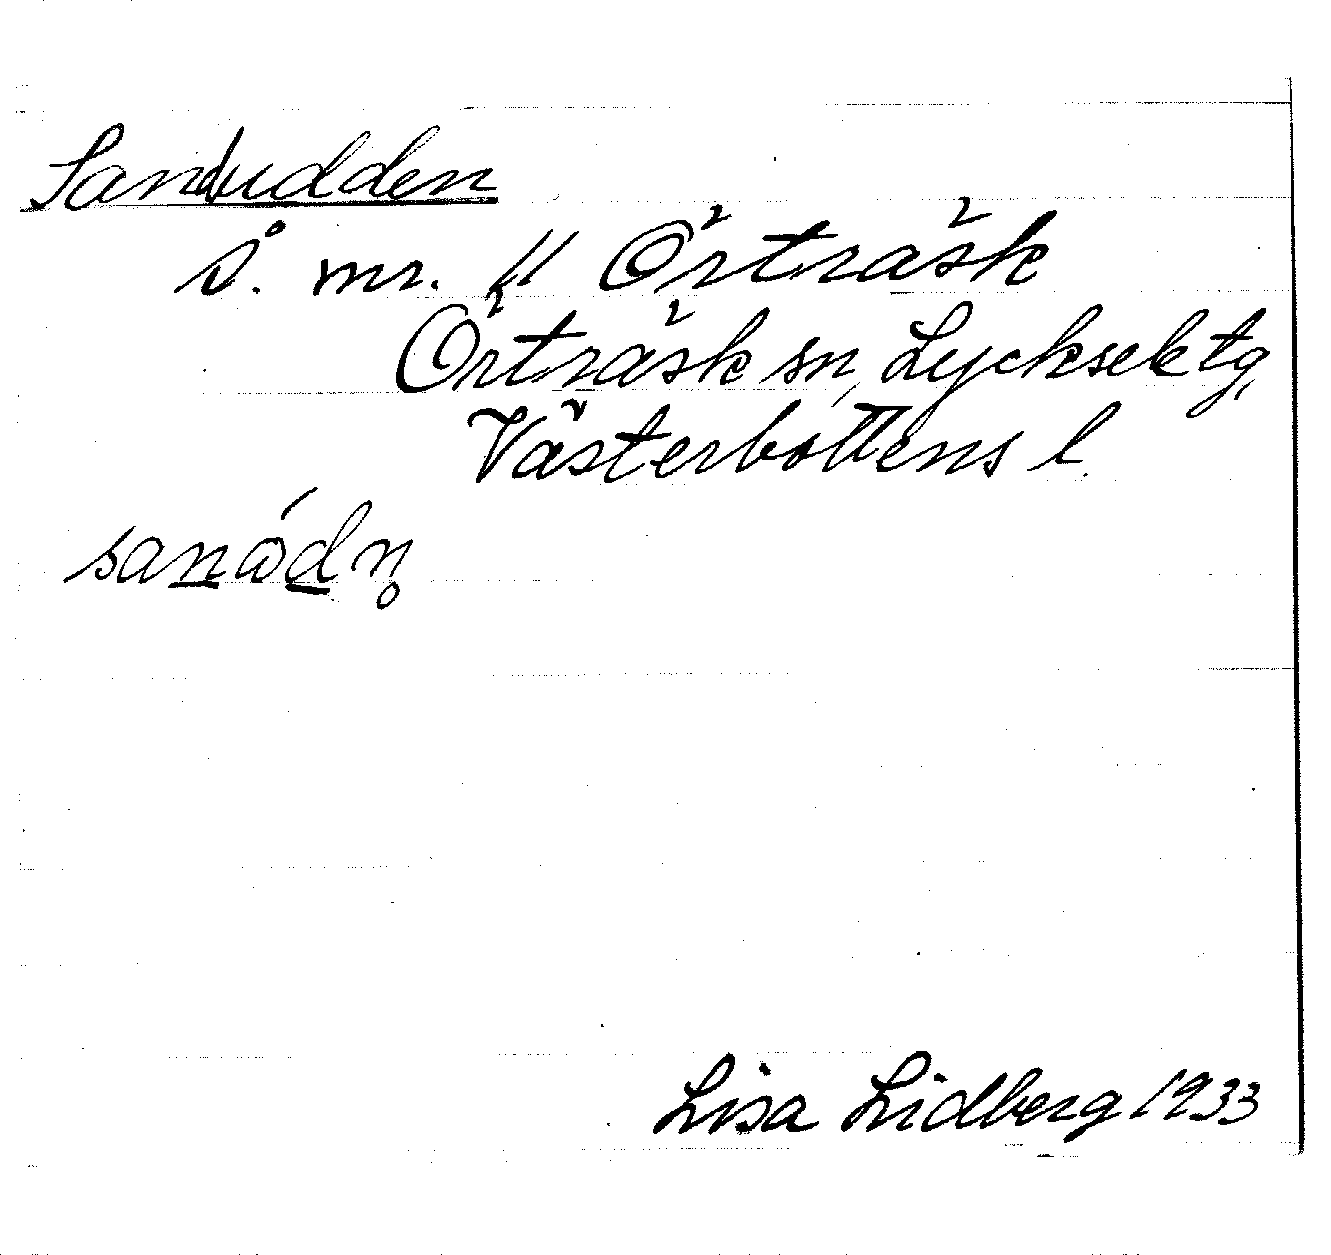 Sandudden
s̊. mr. // Örträsk
Örträsk sn, Lycksele tg,
Västerbottens l.
san̲ώd̲n̥
Lisa Lidberg 1933